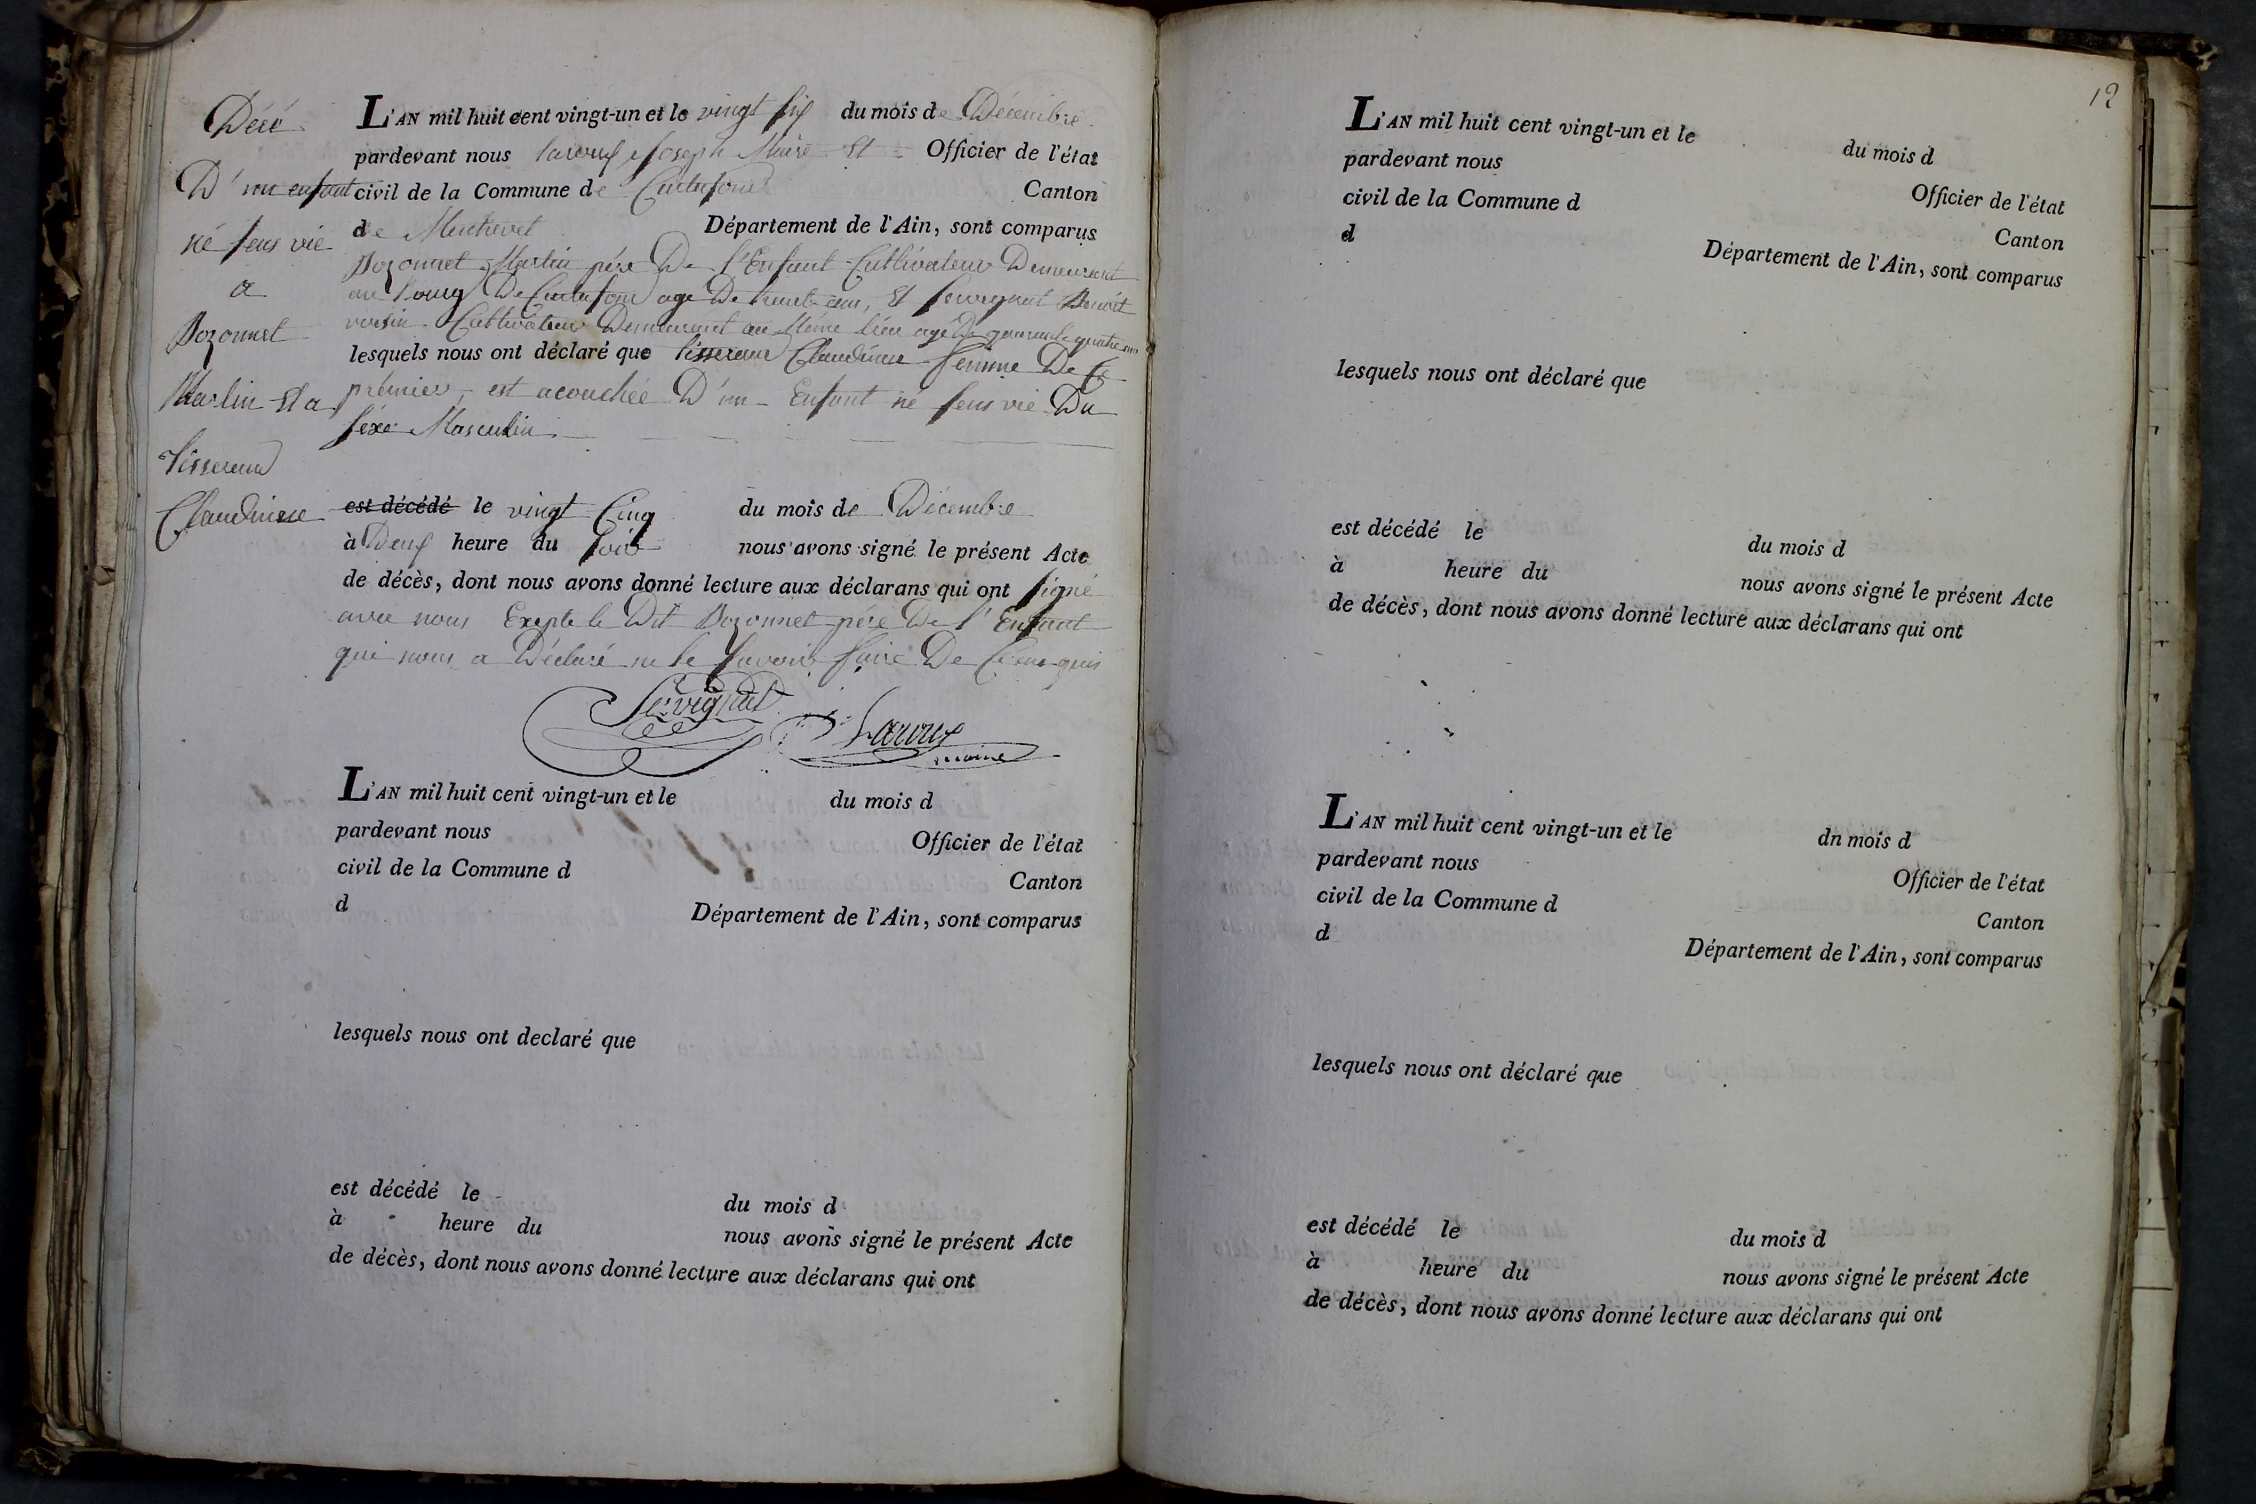 Décé
D'un enfant
né sens vie
a
Bozonnet
Martin Et a
Tisserand
Claudinne
L'AN mil huit cent vingt-un et le vingt six du mois de Décembre
pardevant nous Laroux Joseph Maire Et Officier de l'état
civil de la Commune de Curtafond Canton
de Montrevel Département de l'Ain, sont comparus
Bozonnet Martin père De l'Enfant Cultivateur Demeurant
au bourg De Curtafond agé De trente ans, Et Servignat Benoit
voisin Cultivateur Demeurant au Même lieu agé De quarante quatre ans
lesquels nous ont déclaré que Tisserand Claudinne femme De Ce
prémier, est acouchée D'un Enfant né sens vie Du
séxe Masculin
est décédé le vingt Cinq du mois de Décembre
à Deux heure du soir nous avons signé le présent Acte
de décès, dont nous avons donné lecture aux déclarans qui ont signé
avec nous Exepte le Dit Bozonnet père De l'Enfant
qui nous a Déclaré ne le savoir faire De Ce requis
Servignat
Laroux
maire
L'AN mil huit cent vingt-un et le du mois d
pardevant nous Officier de l'état
civil de la Commune d Canton
d Département de l'Ain, sont comparus
lesquels nous ont declaré que
est décédé le du mois d
à heure du nous avons signé le présent Acte
de décès, dont nous avons donné lecture aux déclarans qui ont
12
L'AN mil huit cent vingt-un et le du mois d
pardevant nous Officier de l'état
civil de la Commune d Canton
d Département de l'Ain, sont comparus
lesquels nous ont déclaré que
est décédé le du mois d
à heure du nous avons signé le présent Acte
de décès, dont nous avons donné lecture aux déclarans qui ont
L'AN mil huit cent vingt-un et le dn mois d
pardevant nous Officier de l'état
civil de la Commune d Canton
d Département de l'Ain, sont comparus
lesquels nous ont déclaré que
est décédé le du mois d
à heure du nous avons signé le présent Acte
de décès, dont nous avons donné lecture aux déclarans qui ont